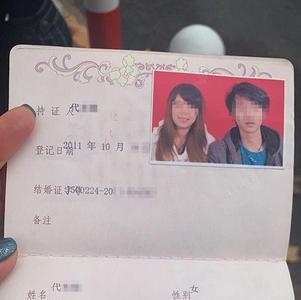 持证人 代
登记日期 2011 年 10 月
结婚证字 J500224-20
备注
姓名 代 性别 女